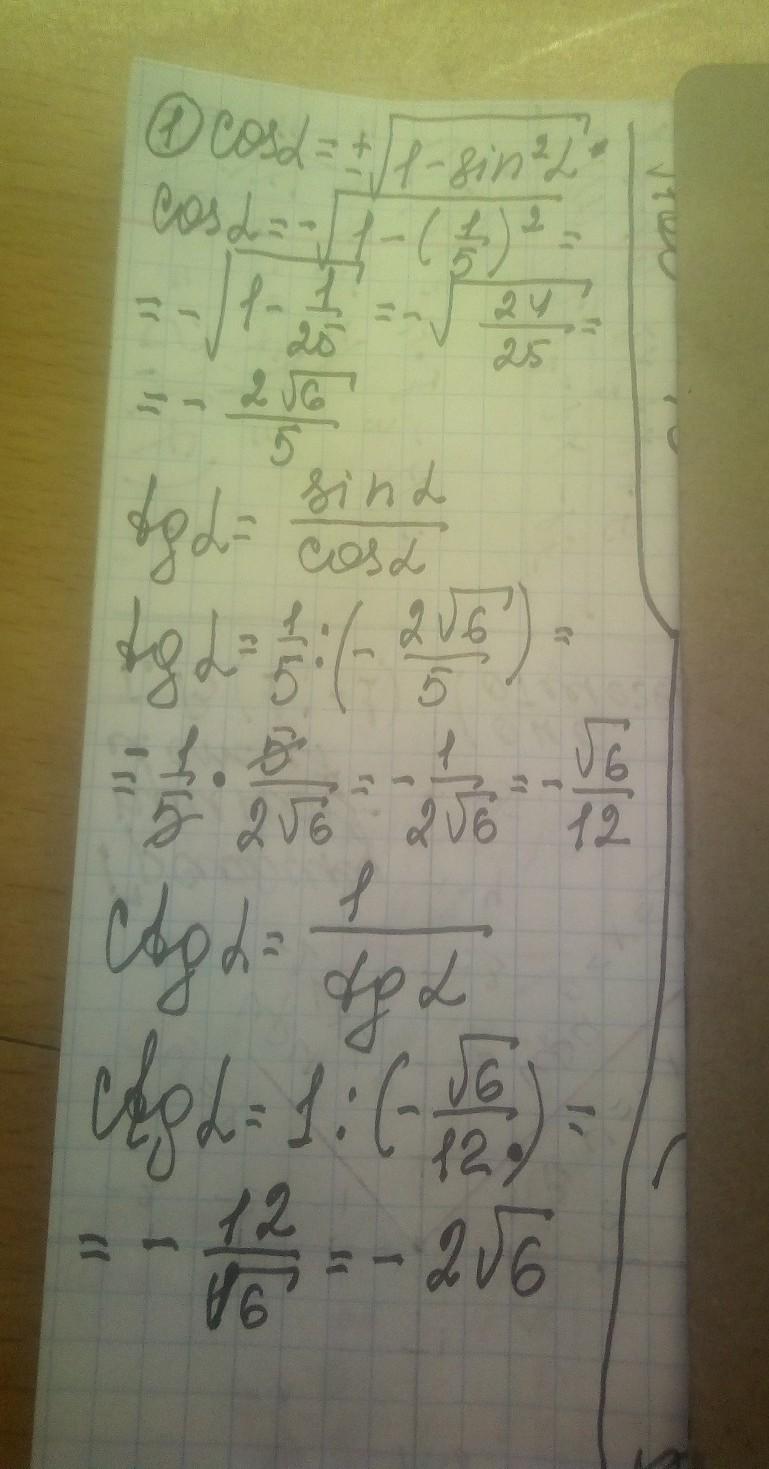 ① cosα = ±√(1 - sin²α)
cosα = -√(1 - (1/5)²) =
= -√(1 - 1/25) = -√(24/25) =
= - 2√6/5
tgα = sinα/cosα
tgα = 1/5 : (- 2√6/5) =
= - 1/5 · 5/2√6 = - 1/2√6 = - √6/12
ctgα = 1/tgα
ctgα = 1 : (- √6/12) =
= - 12/√6 = - 2√6